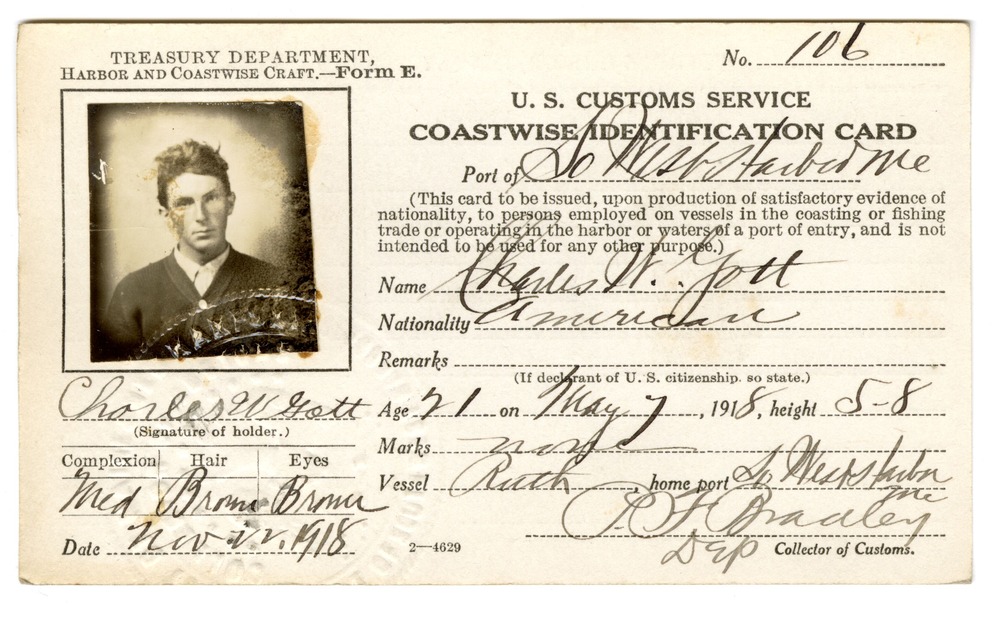 TREASURY DEPARTMENT,
HARBOR AND COASTWISE CRAFT.—Form E.
No. 106
U. S. CUSTOMS SERVICE
COASTWISE IDENTIFICATION CARD
Port of So West Harbor Me
(This card to be issued, upon production of satisfactory evidence of
nationality, to persons employed on vessels in the coasting or fishing
trade or operating in the harbor or waters of a port of entry, and is not
intended to be used for any other purpose.)
Name Charles W. Gott
Nationality American
Remarks
(If declarant of U. S. citizenship, so state.)
Charles W Gott
(Signature of holder.)
Age 21 on May 7, 1918, height 5-8
Marks none
Complexion Hair Eyes
Med Brown Brown
Vessel Ruth, home port So West Harbor
Me
P. F. Bradley
Date Nov 1918
2—4629
Dep Collector of Customs.